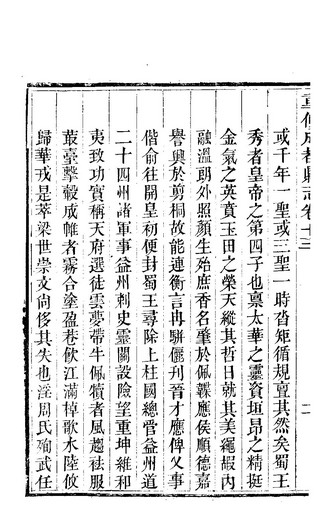 重修成都縣志卷十三
或千年一聖或三聖一時沓矩循規亶其然矣蜀王
秀者皇帝之第四子也稟太華之靈資垣昴之精挺
金氣之英賁玉田之榮天縱其哲日就其美繩嘏內
融溫朗外照顏生殆庶香名肇於佩韘應侯順德嘉
譽興於剪桐故能連衡言冉騈儷刋晉才應俾乂事
偕俞往開皇初便封蜀王尋除上柱國總管益州道
二十四州諸軍事益州刺史靈關設險望重坤維和
夷致功實稱天府選徒雲夢帶牛佩犢者風趨袪服
叢臺擊轂成帷者霧合塗盈巷飲江滿棹歌水陸攸
歸華戎是萃梁世崇文尚侈其失也淫周氏殉武任